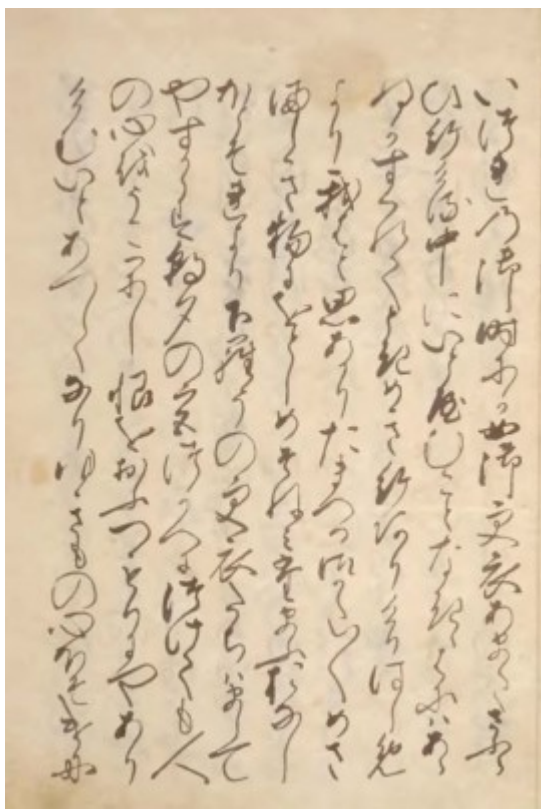 いつれの御時にか女御更衣あまたさふら
ひ給ける中にいとやむことなききはにはあら
ぬかすくれてときめき給ありけりはしめ
より我はと思あかりたまへる御かた〱めさ
ましき物におとしめそねみたまふおなし
ほとそれより下らうの更衣たちはまして
やすからす朝夕の宮つかへにつけても人
の心をうこかし恨をおふつもりにやあり
けむいとあつしくなりゆきもの心ほそけに